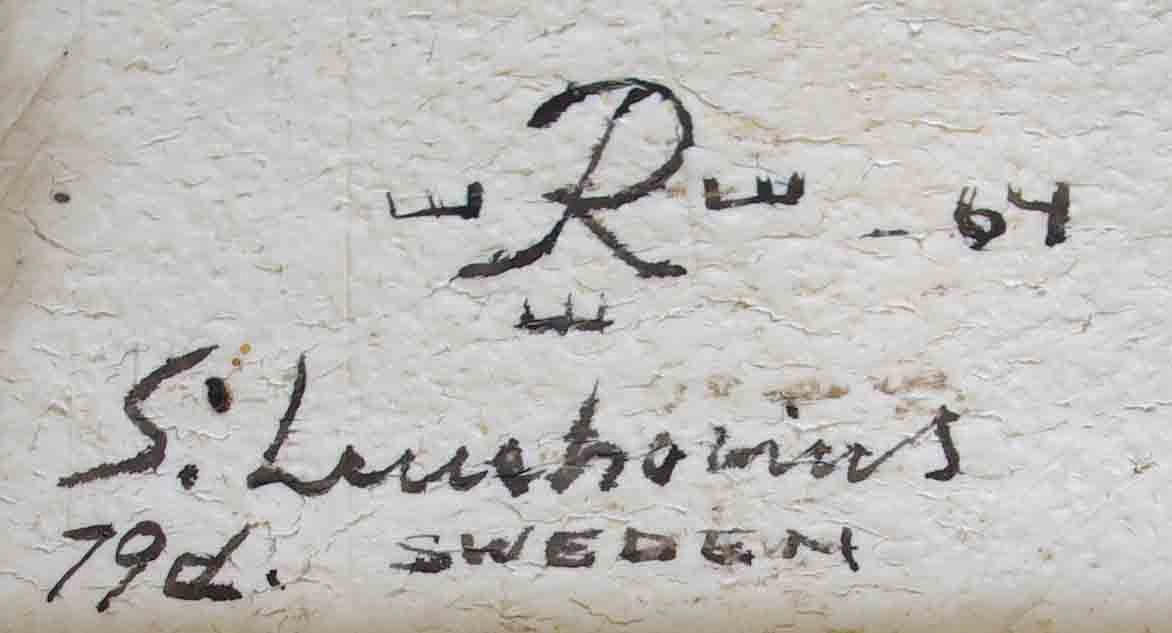 R - 64
S. Leuchovius
79d. SWEDEN